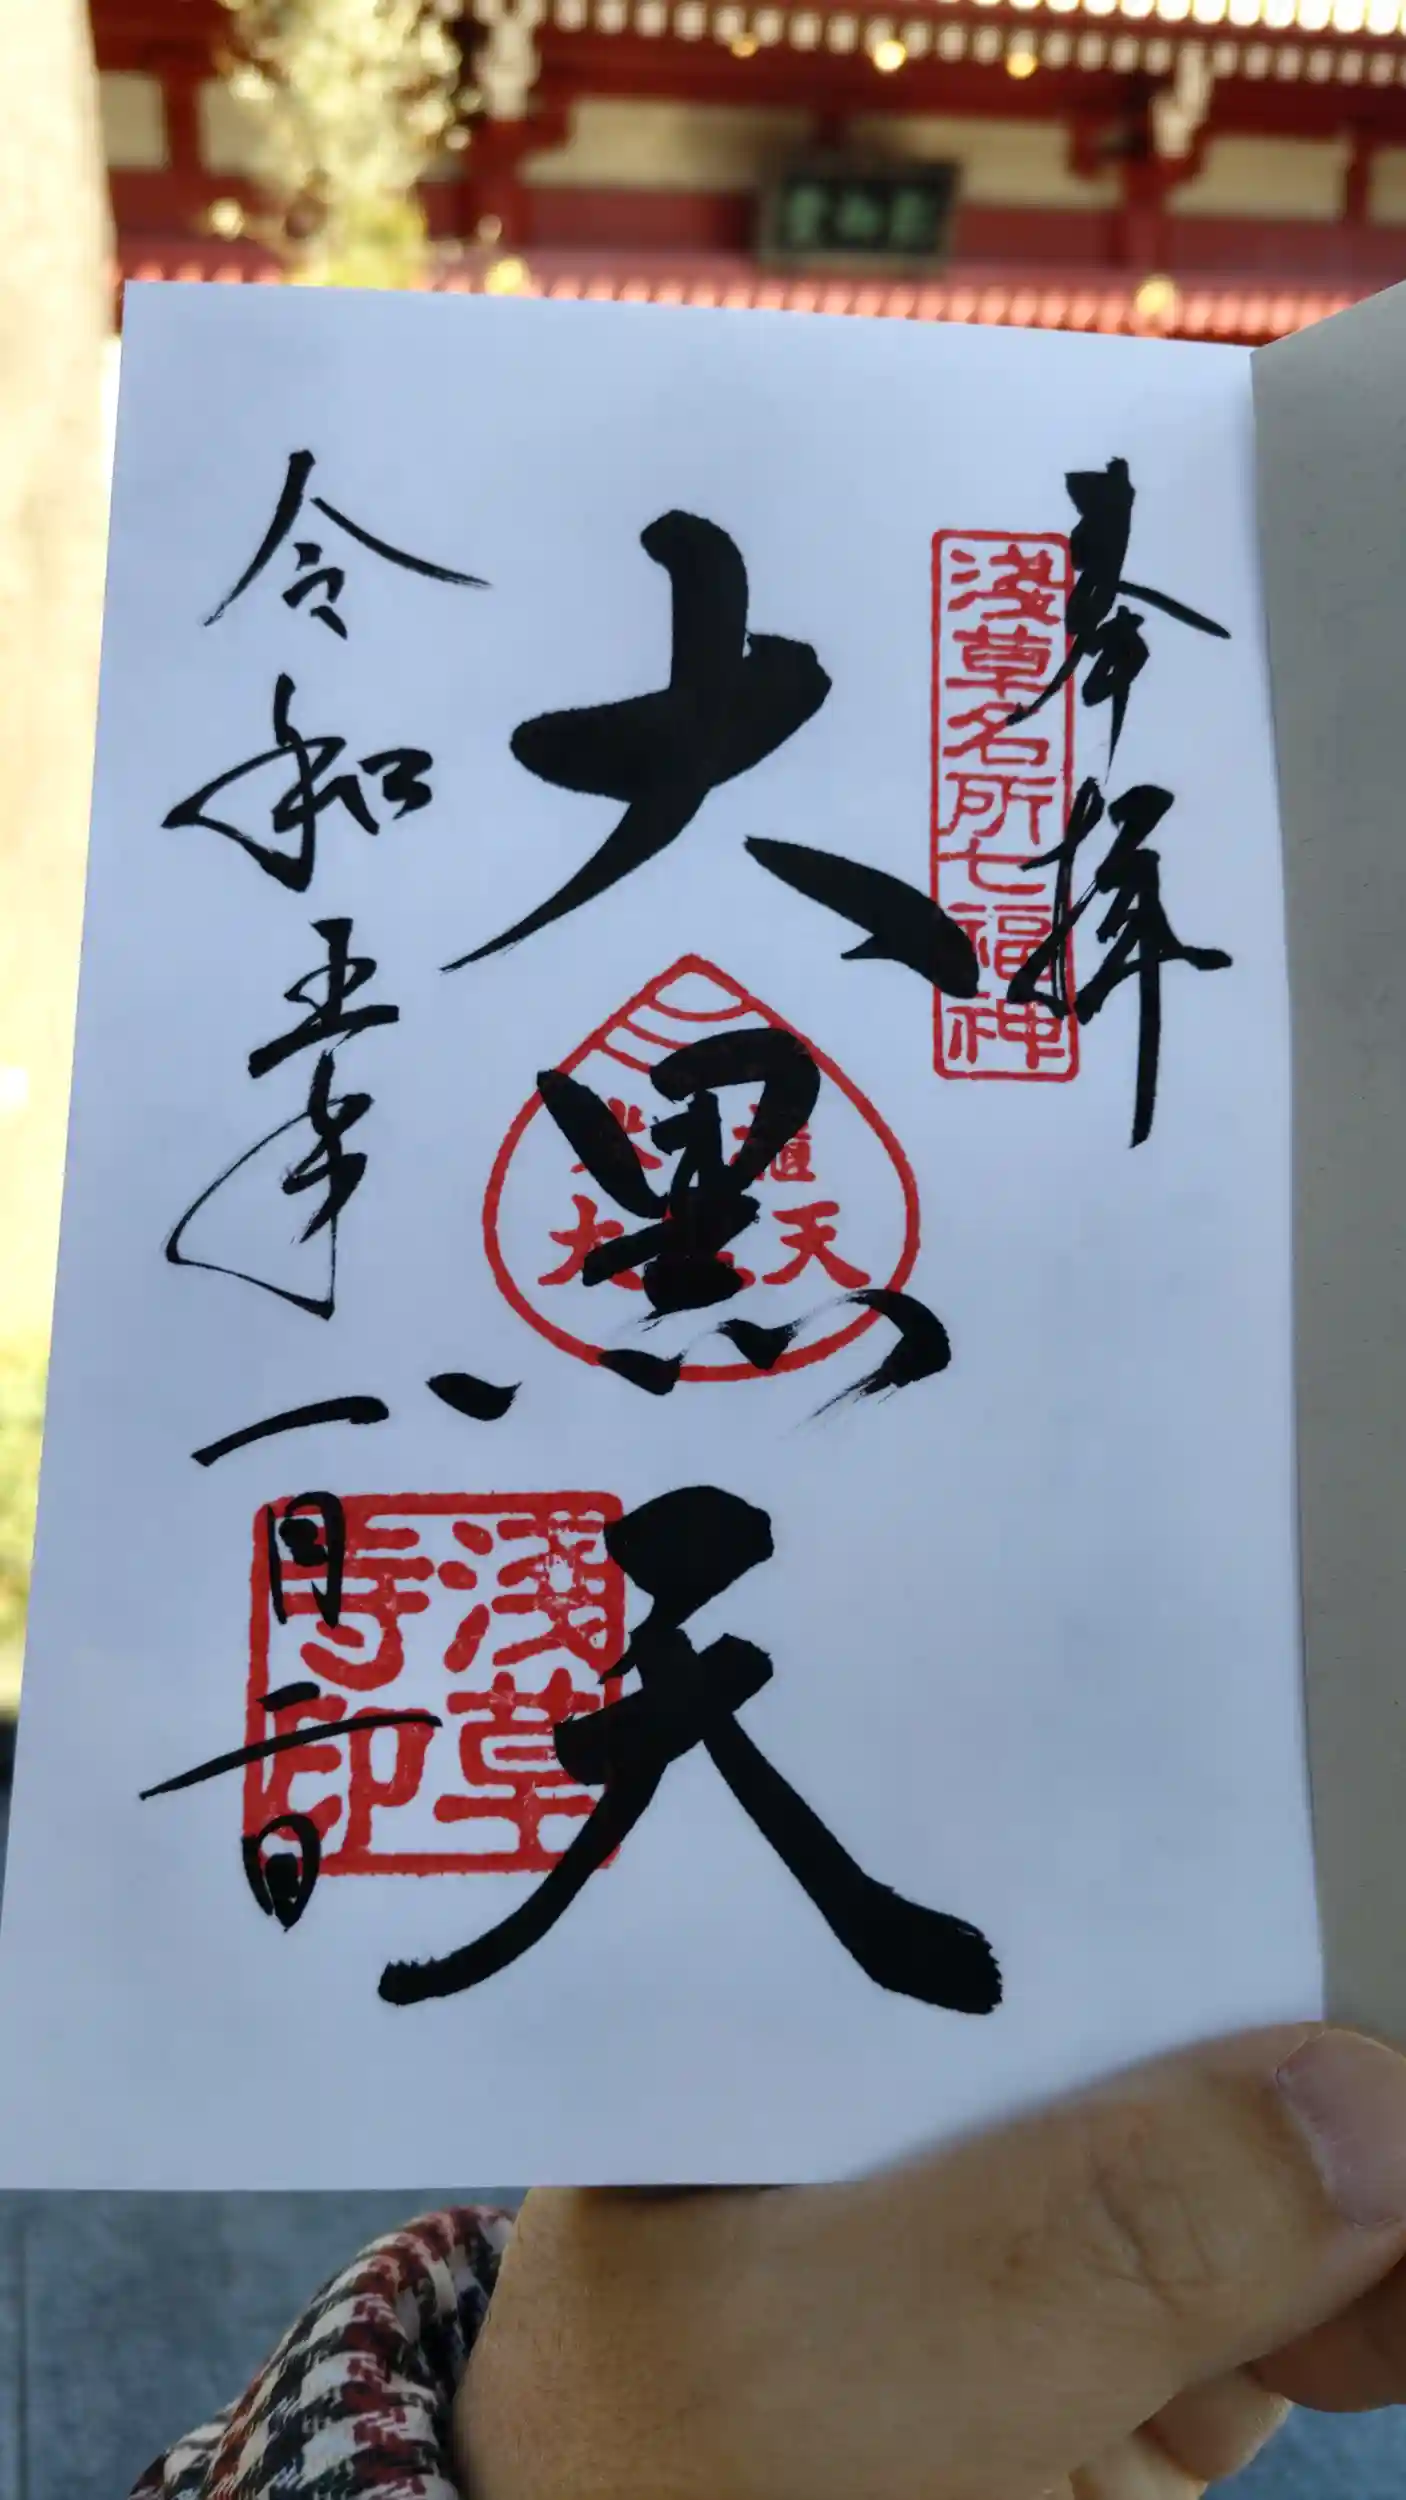 影向堂
奉拝
浅草名所七福神
大黒天
米櫃
大黒天
浅草
寺印
令和五年一月二日